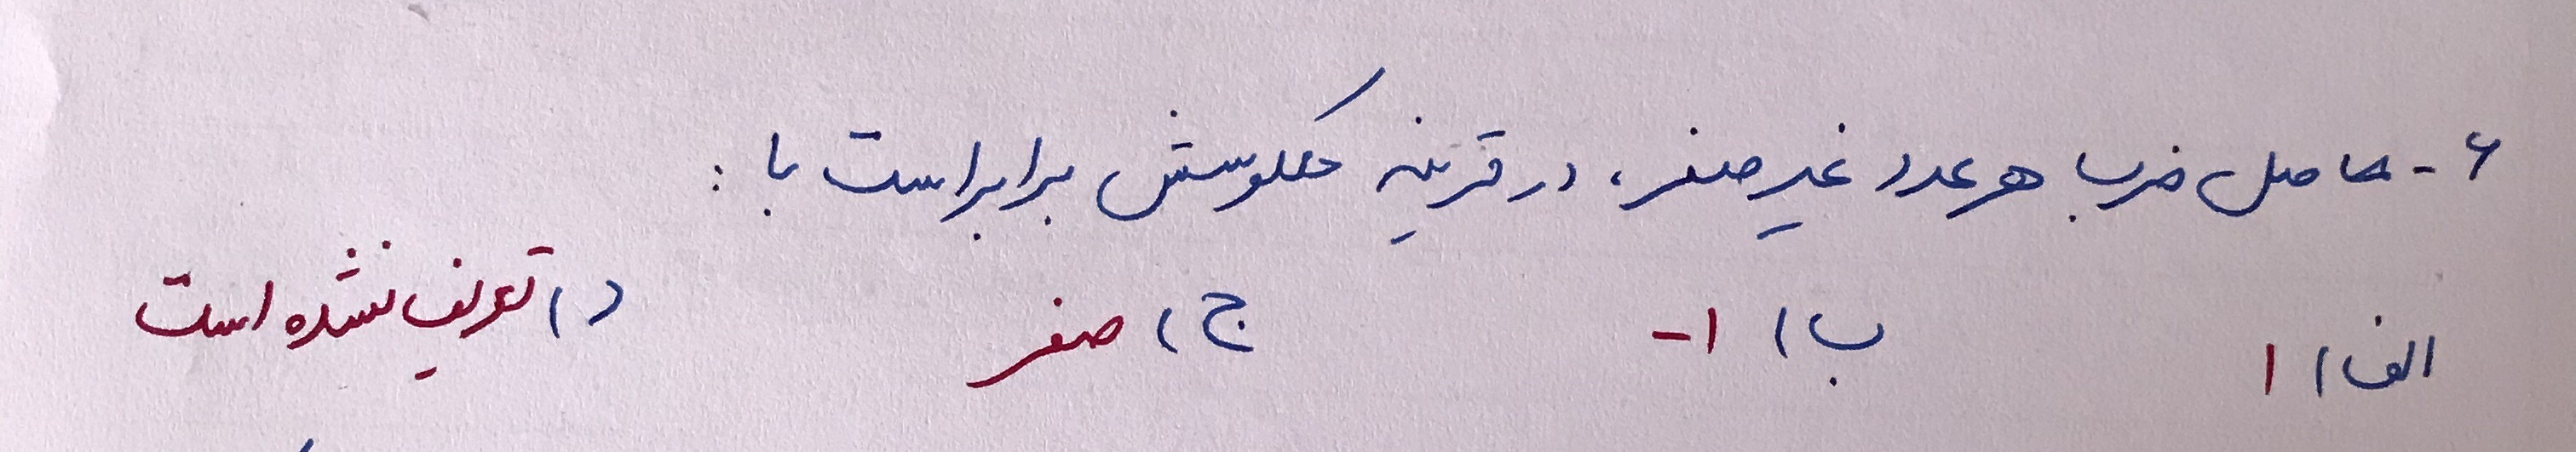 ۶- حاصل ضرب هر عدد غیر صفر، در قرینه معکوسش برابر است با :
الف) ۱ ب) ۱- ج) صفر د) تعریف نشده است